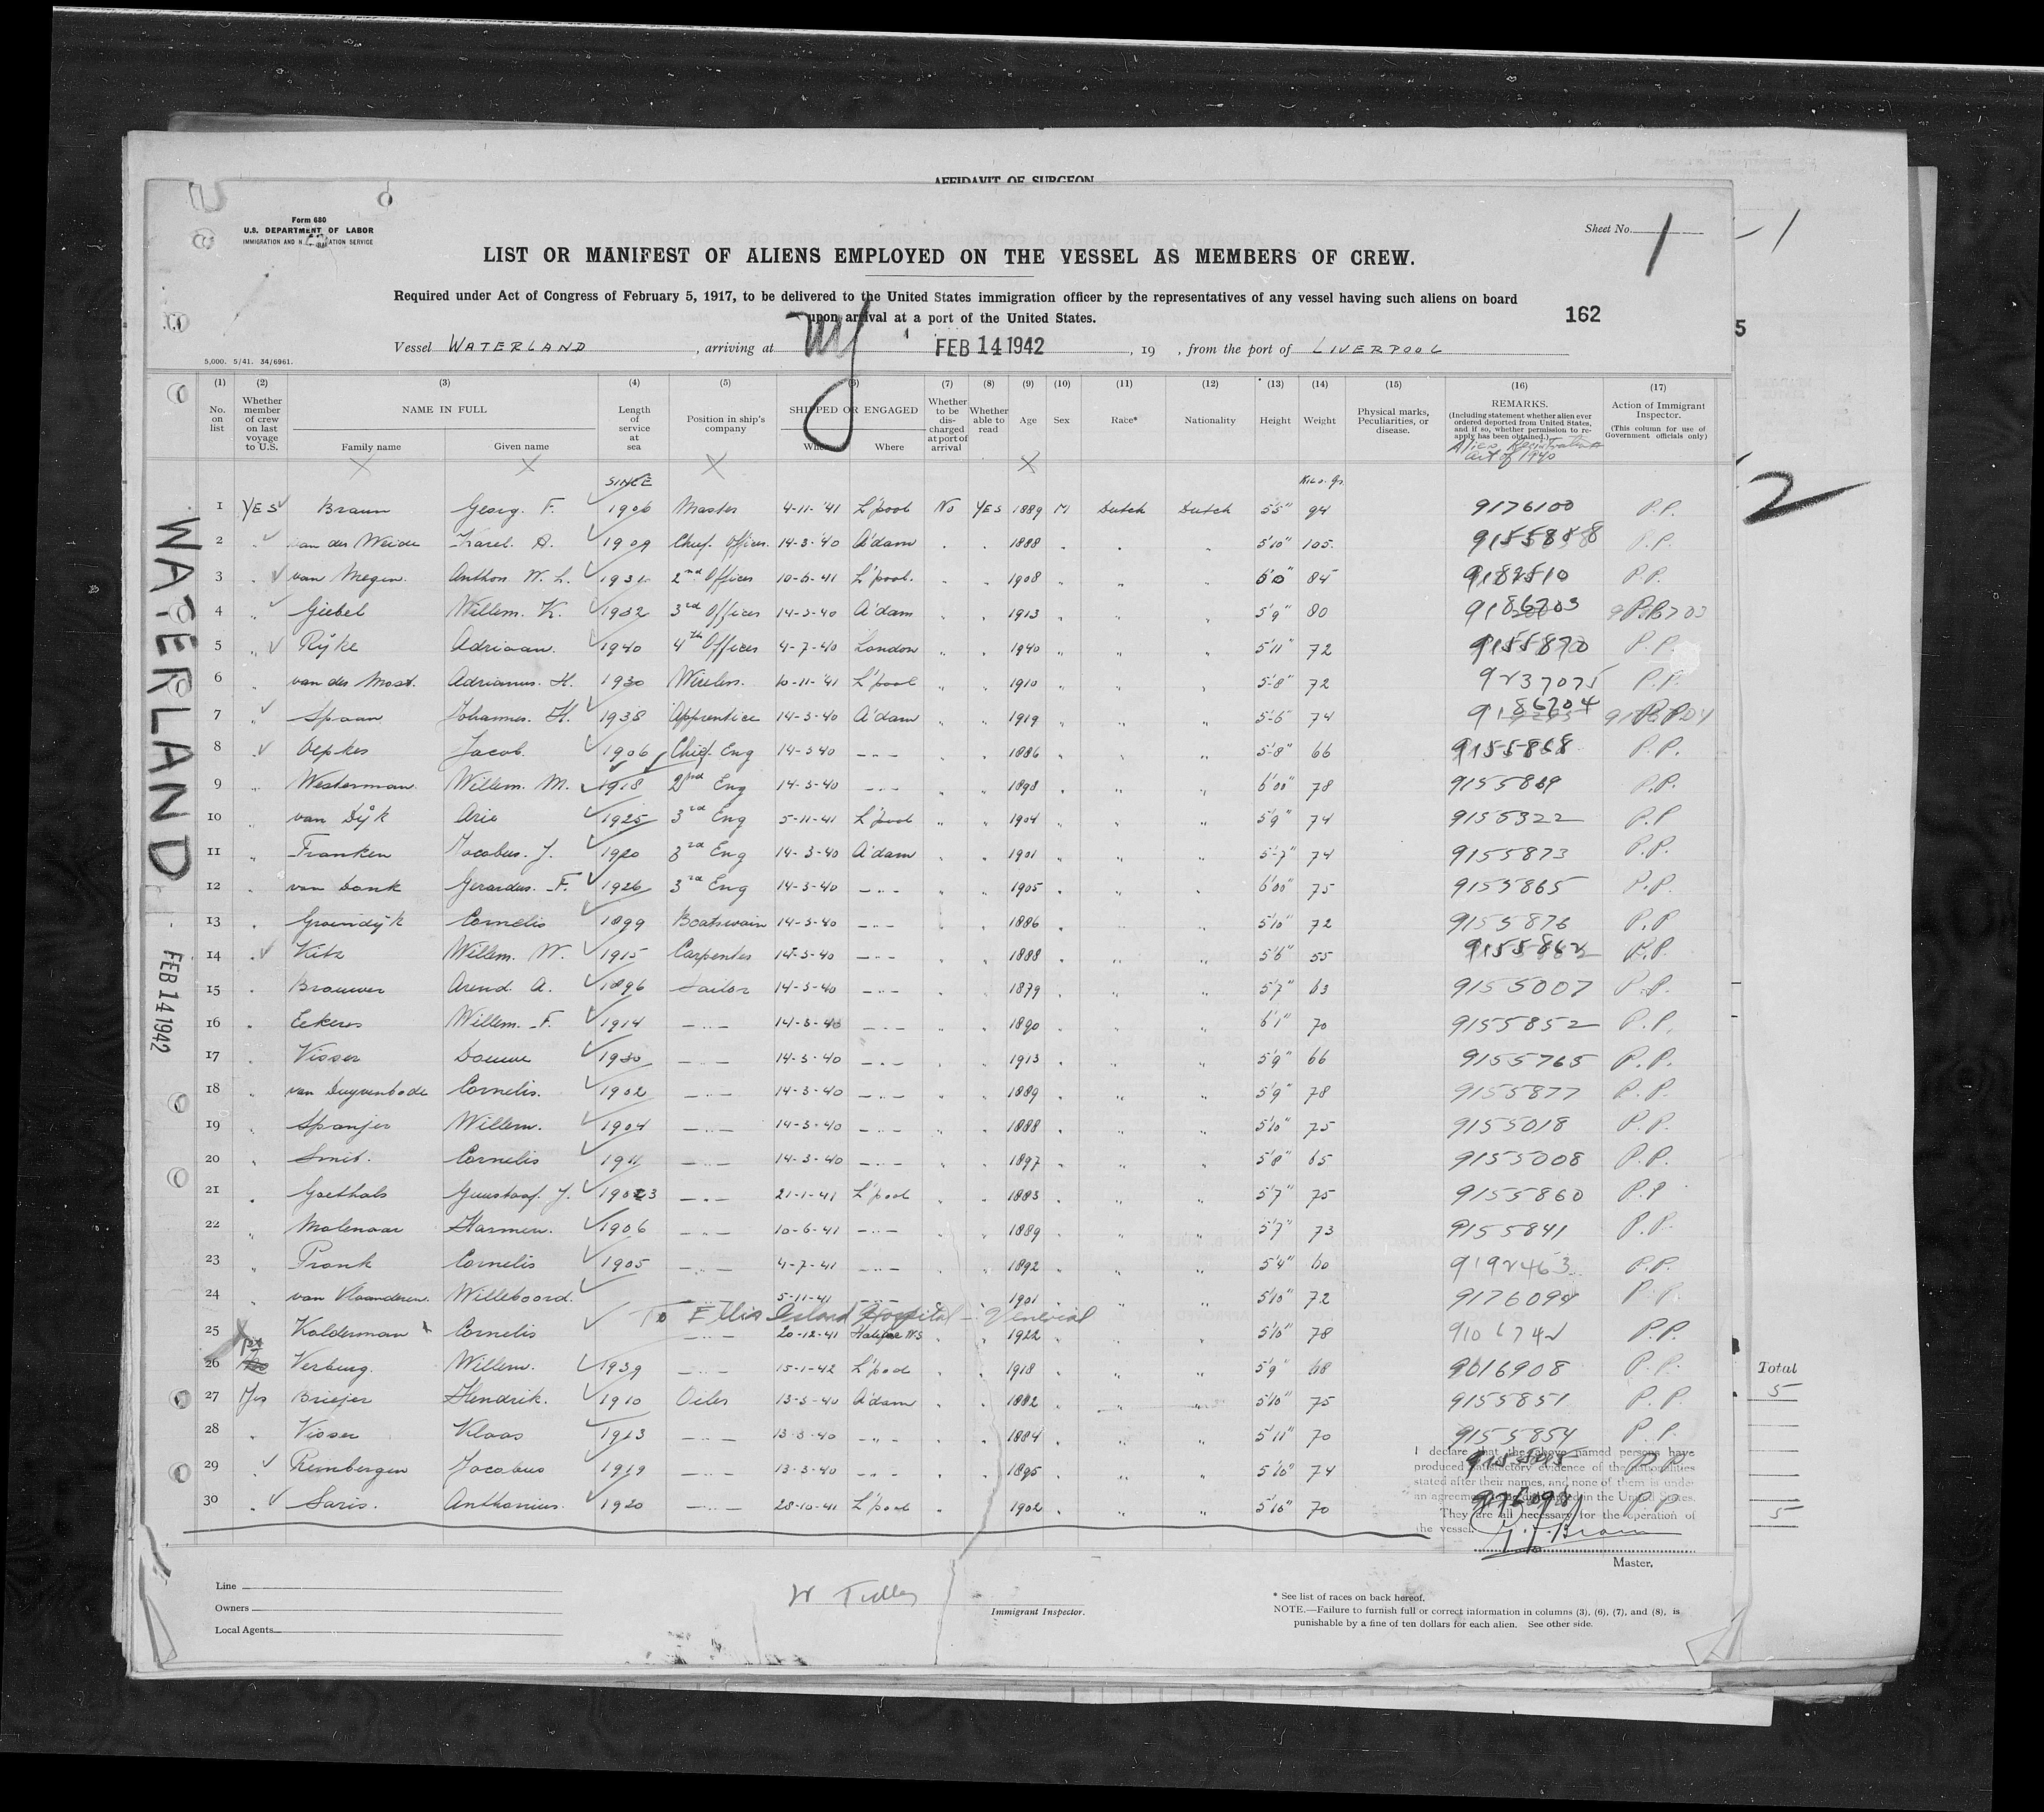 AFFIDAVIT OF SURGEON
Form 680
U.S. DEPARTMENT OF LABOR
IMMIGRATION AND NATURALIZATION SERVICE
Sheet No. 1
LIST OR MANIFEST OF ALIENS EMPLOYED ON THE VESSEL AS MEMBERS OF CREW.
Required under Act of Congress of February 5, 1917, to be delivered to the United States immigration officer by the representatives of any vessel having such aliens on board
upon arrival at a port of the United States.
162
5
Vessel WATERLAND , arriving at NY FEB 14 1942 , 19 , from the port of LIVERPOOL
5,000. 5/41. 34/6961.
(1) (2) (3) (4) (5) (6) (7) (8) (9) (10) (11) (12) (13) (14) (15) (16) (17)
No. on list
Whether member of crew on last voyage to U.S.
NAME IN FULL
Family name
Given name
Length of service at sea
Position in ship's company
SHIPPED OR ENGAGED
When
Where
Whether to be discharged at port of arrival
Whether able to read
Age
Sex
Race*
Nationality
Height
Weight
Physical marks, Peculiarities, or disease.
REMARKS.
(Including statement whether alien ever ordered deported from United States, and if so, whether permission to reapply has been obtained.)
Alien Registration
Act of 1940
Action of Immigrant Inspector.
(This column for use of Government officials only)
SINCE
1 YES Braun Georg. F. 1906 Master 4-11-'41 L'pool No YES 1889 M Dutch Dutch 5'5" 94 9176100 P.P.
2 " van der Weide Karel. A. 1909 Chief. Officer. 14-3-'40 A'dam " " 1888 " " " 5'10" 105. 9155858 P.P.
3 " van Megen. Anthon W. L. 1931 2nd Officer 10-6-41 L'pool. " " 1908 " " " 6'0" 84 9182510 P.P.
4 " Giebel Willem. K. 1932 3rd Officer 14-3-40 A'dam " " 1913 " " " 5'9" 80 9186703 P.P.
5 " Rijke Adriaan. 1940 4th Officer 4-7-40 London " " 1940 " " " 5'11" 72 9155870 P.P.
6 " van der Most. Adrianus. H. 1930 Wireless. 10-11-'41 L'pool " " 1910 " " " 5'8" 72 9237075 P.P.
7 " Spaan Johannes. H. 1938 Apprentice 14-3-40 A'dam " " 1919 " " " 5'6" 74 9186704
8 " Oepkes Jacob. 1906 Chief Eng 14-3-40 -"- " " 1886 " " " 5'8" 66 9155868 P.P.
9 " Westerman. Willem. M. 1918 2nd Eng 14-3-40 -"- " " 1898 " " " 6'00" 78 9155869 P.P.
10 " van Dijk Arie 1925 3rd Eng 5-11-41 L'pool " " 1904 " " " 5'9" 74 9155322 P.P
11 " Franken Jacobus. J. 1920 3rd Eng 14-3-40 A'dam " " 1901 " " " 5'7" 74 9155873 P.P.
12 " van Donk Gerardus. F. 1926 3rd Eng 14-3-40 -"- " " 1905 " " " 6'00" 75 9155865 P.P.
13 " Groindijk Cornelis 1899 Boatswain 14-3-40 -"- " " 1886 " " " 5'10" 72 9155876 P.P
14 " Kitz Willem. W. 1915 Carpenter 14-3-40 -"- " " 1888 " " " 5'6" 55 9155862 P.P.
15 " Brouwer Arend. A. 1896 Sailor 14-3-40 -"- " " 1879 " " " 5'7" 63 9155007 P.P.
16 " Eekers Willem. F. 1914 -"- 14-3-40 -"- " " 1890 " " " 6'1" 70 9155852 P.P.
17 " Visser Douwe 1930 -"- 14-3-40 -"- " " 1913 " " " 5'9" 66 9155765 P.P.
18 " van Duyvenbode Cornelis. 1902 -"- 14-3-40 -"- " " 1889 " " " 5'9" 78 9155877 P.P.
19 " Spanjer Willem. 1904 -"- 14-3-40 -"- " " 1888 " " " 5'10" 75 9155018 P.P.
20 " Smit. Cornelis 1911 -"- 14-3-40 -"- " " 1897 " " " 5'8" 65 9155008 P.P.
21 " Goethals Gustaaf. J. -"- 21-1-41 L'pool " " 1883 " " " 5'7" 75 9155860 P.P
22 " Molenaar Harmen. 1906 -"- 10-6-41 -"- " " 1889 " " " 5'7" 73 9155841 P.P.
23 " Pronk Cornelis 1905 -"- 4-7-41 -"- " " 1892 " " " 5'4" 60 9192463 P.P.
24 " van Vlaanderen. Willeboord. 5-11-41 " " 1901 " " " 5'10" 72 9176094 P.P.
To Ellis Island Hospital - Venerial
25 Kalderman Cornelis -"- 20-12-41 Halifax NS " " 1922 " " " 5'10" 78 9106742 P.P.
26 Verburg. Willem. 1939 -"- 15-1-42 L'pool " " 1918 " " " 5'9" 68 9016908 P.P.
27 Yes Briejer Hendrik. 1910 Oiler 13-3-40 A'dam " " 1882 " " " 5'10" 75 9155851 P.P.
28 " Visser Klaas 1913 -"- 13-3-40 -"- " " 1884 " " " 5'11" 70 9155854 P.P.
29 " Rembergen Jacobus 1919 -"- 13-3-40 -"- " " 1895 " " " 5'10" 74 P.P.
30 " Saris. Anthonius. 1920 -"- 28-10-41 L'pool " " 1902 " " " 5'10" 70 P.P
I declare that the above named persons have
produced satisfactory evidence of the nationalities
stated after their names, and none of them is under
an agreement to be discharged in the United States.
They are all necessary for the operation of
the vessel.
G. F. Braun
Master.
Line
Owners
Local Agents
Immigrant Inspector.
* See list of races on back hereof.
NOTE.—Failure to furnish full or correct information in columns (3), (6), (7), and (8), is
punishable by a fine of ten dollars for each alien. See other side.
WATERLAND
FEB 14 1942
1
2
Total
5
5